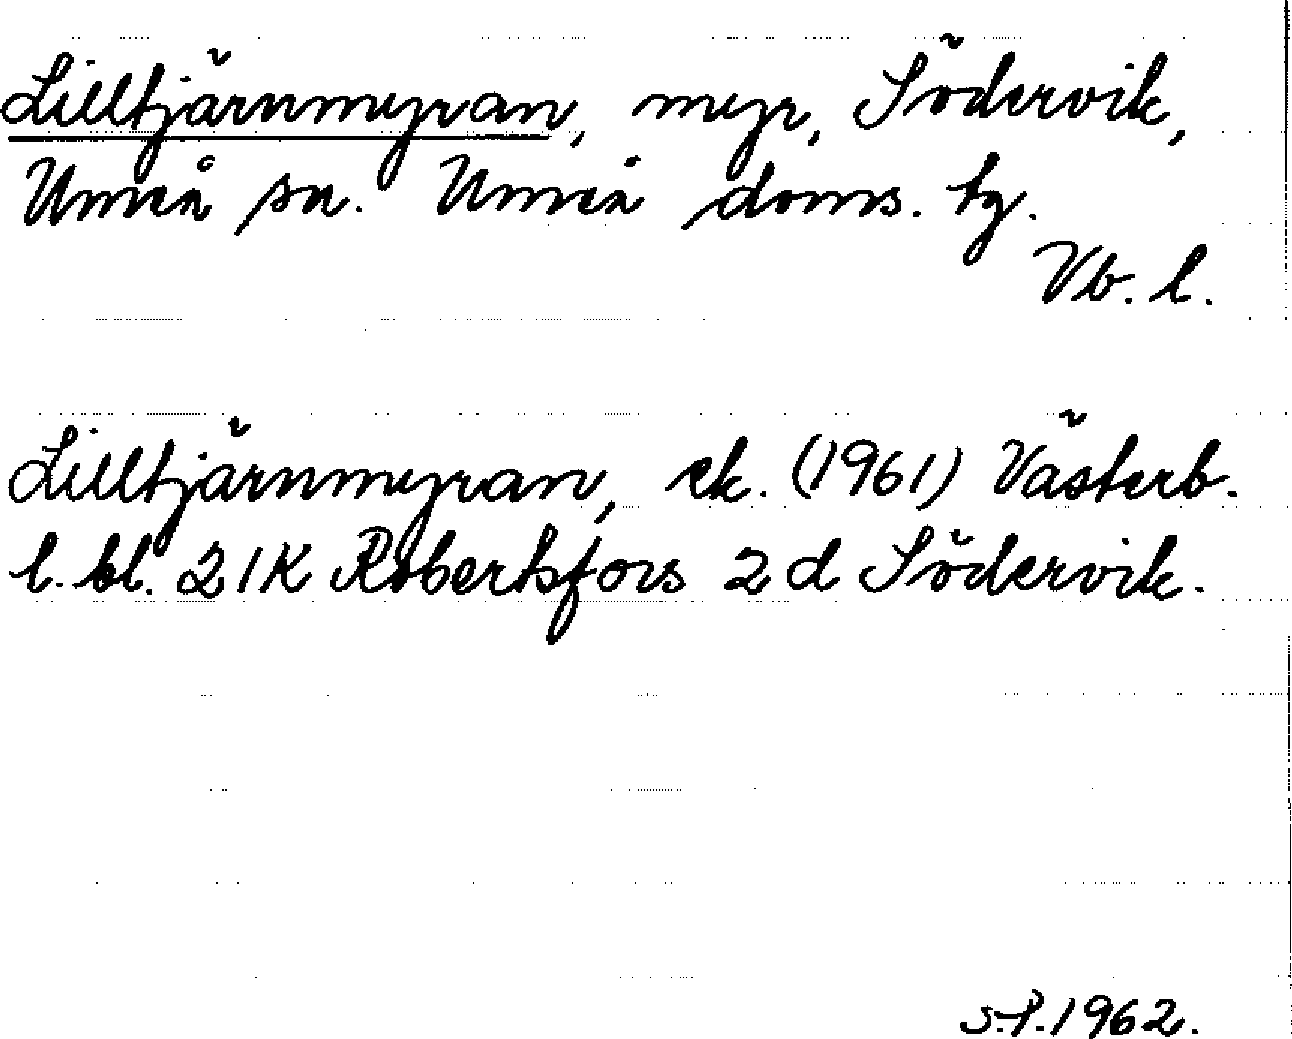 Lilltjärnmyran, myr, Södervik,
Umeå sn. Umeå doms. tg.
Vb. l.
Lilltjärnmyran, ek. (1961) Västerb.
l. bl. 21K Robertsfors 2 d Södervik.
S.P. 1962.